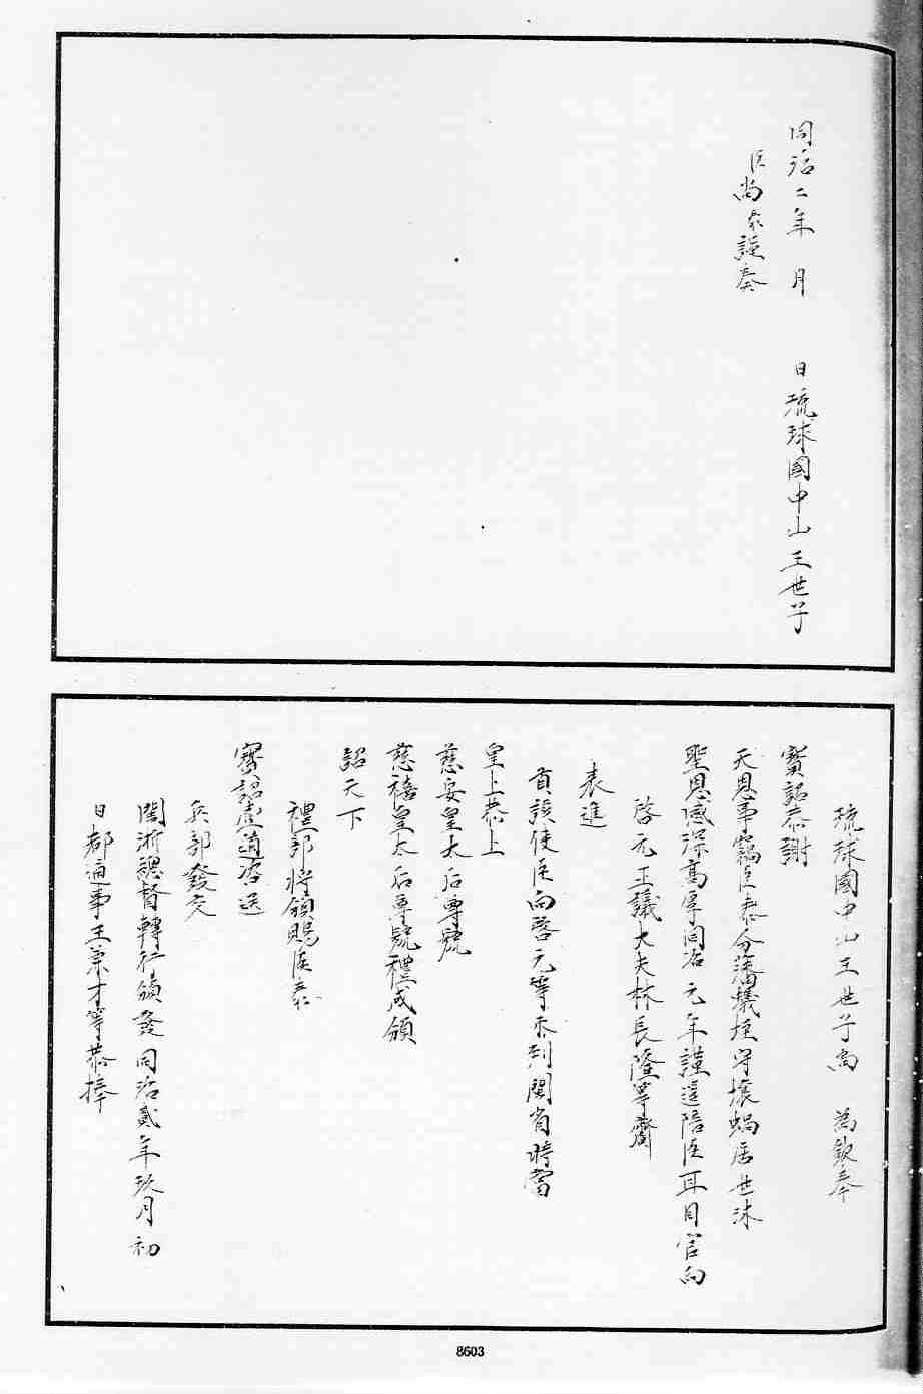 同治二年　月　　日琉球國中山王世子
臣尚泰謹奏
琉球國中山王世子尚　為欽奉
寶詔恭謝
天恩事竊臣泰分藩蟻垤守壤蝸居世沐
聖恩感深高厚同治元年謹遣陪臣耳目官向
啓元正議大夫林長隆等齎
表進
貢該使臣向啓元等未到閩省時當
皇上恭上
慈安皇太后尊號
慈禧皇太后尊號禮成頒
詔天下
禮部將頒賜臣泰
寶詔壹道咨送
兵部發交
閩浙總督轉行頒發同治貳年玖月初
日都通事王兼才等恭捧
8603